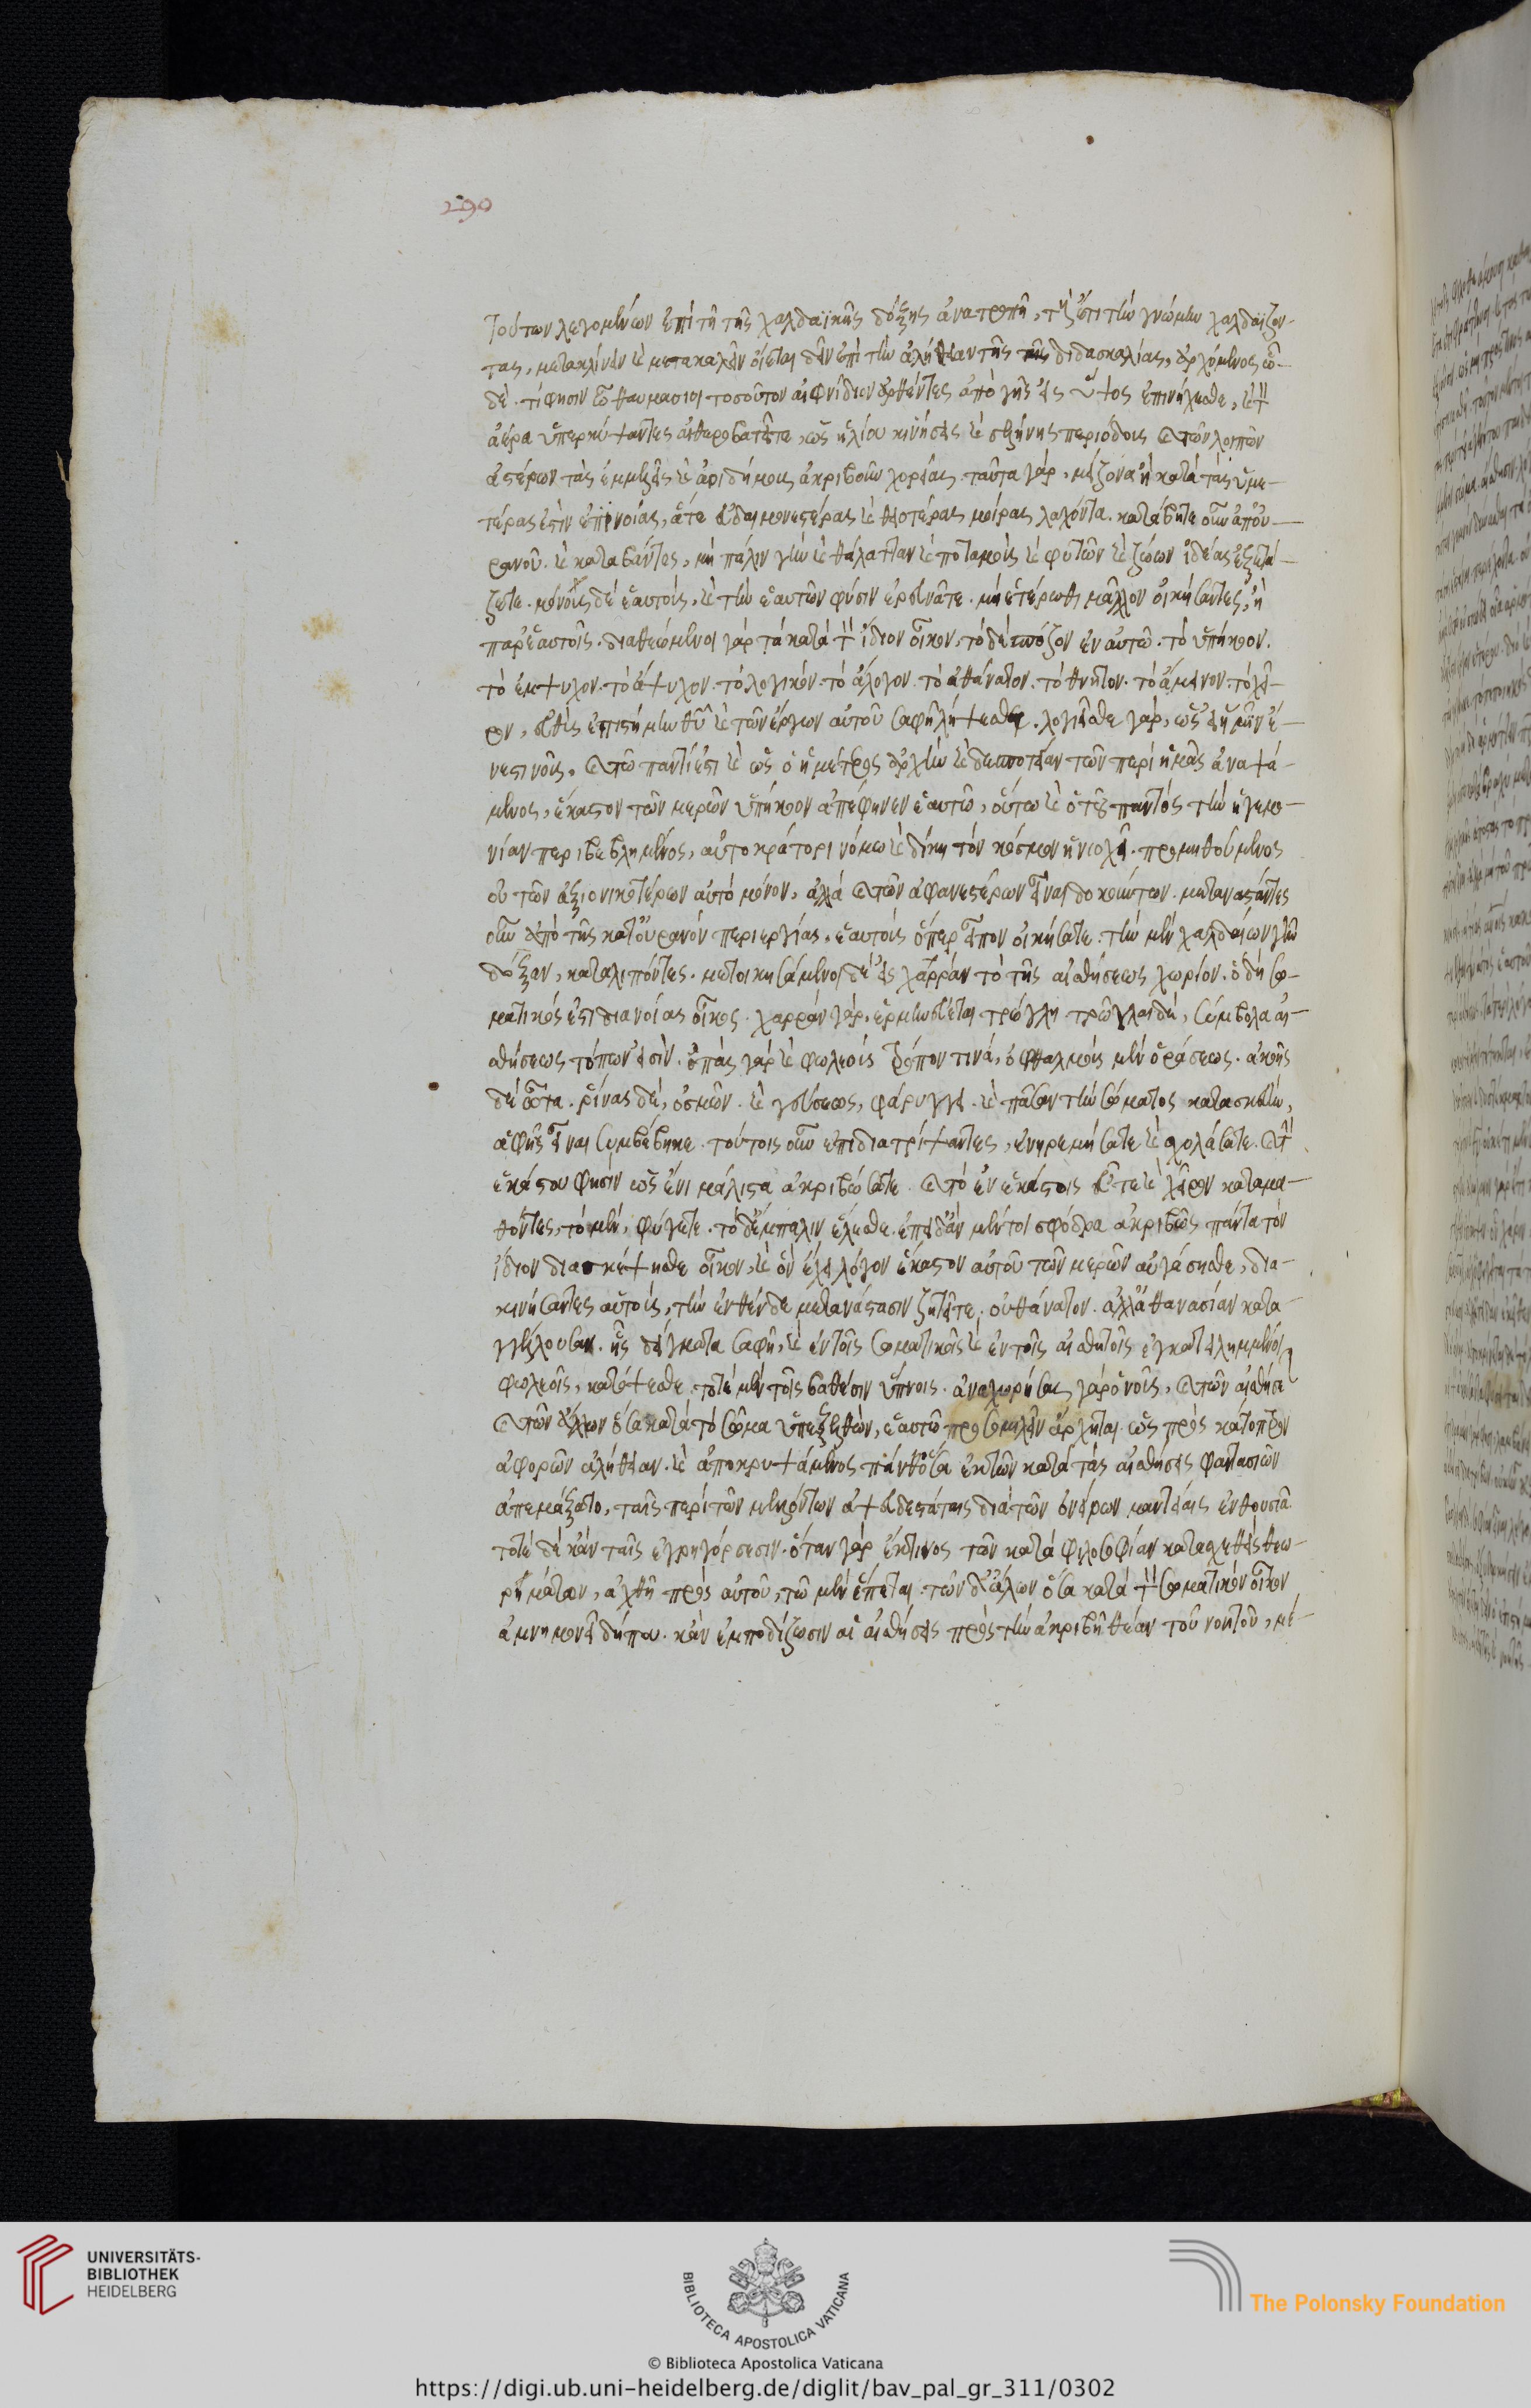 290
Τούτων λεγομένων ἐπὶ τῇ τῆς χαλδαϊκῆς δόξης ἀνατροπῇ, τοὺς ἔτι τὴν γνώμην χαλδαΐζον-
τας, μετακλίνειν καὶ μετακαλεῖν οἴεται δεῖν ἐπὶ τὴν ἀλήθειαν τῆς διδασκαλίας, ἀρχόμενος ὧ-
δε. τί φησιν ὦ θαυμάσιοι τοσοῦτον αἰφνίδιον ἀρθέντες ἀπὸ γῆς εἰς ὕψος ἐπινήχεσθε, καὶ τὸν
ἀέρα ὑπερκύψαντες αἰθεροβατεῖτε, ὡς ἡλίου κινήσεις καὶ σελήνης περιόδους καὶ τῶν λοιπῶν
ἀστέρων τὰς ἐμμελεῖς καὶ ἀοιδήμους ἀκριβοῦν χορείας. ταῦτα γάρ, μείζονα ἢ κατὰ τὰς ὑμε-
τέρας ἐστὶν ἐπινοίας, ἅτε εὐδαιμονεστέρας καὶ θειοτέρας μοίρας λαχόντα. κατάβητε οὖν ἀπ' οὐ-
ρανοῦ. καὶ καταβάντες, μὴ πάλιν γῆν καὶ θάλατταν καὶ ποταμοὺς καὶ φυτῶν καὶ ζώων ἰδέας ἐξετά-
ζετε. μόνους δὲ ἑαυτοὺς, καὶ τὴν ἑαυτῶν φύσιν ἐρευνᾶτε. μὴ ἑτέρωθι μᾶλλον οἰκήσαντες, ἢ
παρ' ἑαυτοῖς. διαθεώμενοι γὰρ τὰ κατὰ τὸν ἴδιον οἶκον, τὸ δεσπόζον ἐν αὐτῷ. τὸ ὑπήκοον.
τὸ ἔμψυχον. τὸ ἄψυχον. τὸ λογικόν. τὸ ἄλογον. τὸ ἀθάνατον. τὸ θνητόν. τὸ ἄμεινον. τὸ χεῖ-
ρον, εὐθὺς ἐπιστήμην θεοῦ καὶ τῶν ἔργων αὐτοῦ σαφῆ λήψεσθε. λογιεῖσθε γάρ, ὡς εἰ ἡμῖν ἔ-
νεστι νοῦς, καὶ τῷ παντί ἐστι καὶ ὡς ὁ ἡμέτερος ἀρχὴν καὶ δεσποτείαν τῶν περὶ ἡμᾶς ἀναψά-
μενος, ἕκαστον τῶν μερῶν ὑπήκοον ἀπέφηνεν ἑαυτῷ, οὕτω καὶ ὁ τοῦ παντὸς τὴν ἡγεμο-
νίαν περιβεβλημένος, αὐτοκράτορι νόμῳ καὶ δίκῃ τὸν κόσμον ἡνιοχεῖ. προμηθούμενος
οὐ τῶν ἀξιονικοτέρων αὐτὸ μόνον, ἀλλὰ καὶ τῶν ἀφανεστέρων εἶναι δοκούντων. μεταναστάντες
οὖν ἀπὸ τῆς κατ' οὐρανὸν περιεργίας, ἑαυτοὺς ὅπερ εἶπον οἰκήσατε. τὴν μὲν χαλδαίων γῆν
δόξαν, καταλιπόντες. μετοικησάμενοι δὲ εἰς χαρρὰν τὸ τῆς αἰσθήσεως χωρίον. ὃ δὴ σω-
ματικός ἐστι διανοίας οἶκος. χαρρὰν γάρ, ἑρμηνεύεται τρώγλη. τρῶγλαι δέ, σύμβολα αἰ-
σθήσεως τόπων εἰσίν. ὀπὰς γὰρ καὶ φωλεοὺς τρόπον τινά, ὀφθαλμοὺς μὲν ὁράσεως. ἀκοῆς
δὲ ὦτα. ῥῖνας δέ, ὀσμῶν. καὶ γεύσεως, φάρυγγα. καὶ πᾶσαν τὴν σώματος κατασκευὴν,
ἀφῆς εἶναι συμβέβηκε. τούτοις οὖν ἐπιδιατρίψαντες, ἐνηρεμήσατε καὶ σχολάσατε. καὶ τὴν
ἑκάστου φύσιν ὡς ἔνι μάλιστα ἀκριβώσατε. καὶ τὸ ἐν ἑκάστοις εὖ τε καὶ χεῖρον καταμα-
θόντες, τὸ μὲν, φύγετε. τὸ δ' ἔμπαλιν ἕλεσθε. ἐπειδὰν μέντοι σφόδρα ἀκριβῶς πάντα τὸν
ἴδιον διασκέψησθε οἶκον, καὶ ὃν ἔχει λόγον ἕκαστον αὐτοῦ τῶν μερῶν αὐγάσησθε, δια-
κινήσαντες αὑτούς, τὴν ἐνθένδε μετανάστασιν ζητεῖτε. οὐ θάνατον. ἀλλ' ἀθανασίαν κατα-
γγέλλουσαν. ἧς δείγματα σαφῆ, καὶ ἐν τοῖς σωματικοῖς καὶ ἐν τοῖς αἰσθητοῖς ἐγκατειλημμένοι
φωλεοῖς, κατόψεσθε. τοτὲ μὲν τοῖς βαθέσιν ὕπνοις. ἀναχωρήσας γὰρ ὁ νοῦς, καὶ τῶν αἰσθήσε
καὶ τῶν ἄλλων ὅσα κατὰ τὸ σῶμα ὑπεξελθών, ἑαυτῷ προσομιλεῖν ἄρχεται. ὡς πρὸς κάτοπτρον
ἀφορῶν ἀλήθειαν. καὶ ἀπορρυψάμενος πάνθ' ὅσα ἐκ τῶν κατὰ τὰς αἰσθήσεις φαντασιῶν
ἀπεμάξατο, ταῖς περὶ τῶν μελλόντων ἀψευδεστάταις διὰ τῶν ὀνείρων μαντείαις ἐνθουσιᾷ
τοτὲ δὲ κἂν ταῖς ἐγρηγόρσεσιν. ὅταν γὰρ ἔκ τινος τῶν κατὰ φιλοσοφίαν κατασχεθεὶς θεω-
ρημάτων, ἀχθῇ πρὸς αὐτοῦ, τῷ μὲν ἕπεται. τῶν δ' ἄλλων ὅσα κατὰ τὸν σωματικὸν οἶκον
ἀμνημονεῖ δήπου. κἂν ἐμποδίζωσιν αἱ αἰσθήσεις πρὸς τὴν ἀκριβῆ θέαν τοῦ νοητοῦ, μέ-
UNIVERSITÄTS-
BIBLIOTHEK
HEIDELBERG
BIBLIOTECA APOSTOLICA VATICANA
The Polonsky Foundation
© Biblioteca Apostolica Vaticana
https://digi.ub.uni-heidelberg.de/diglit/bav_pal_gr_311/0302